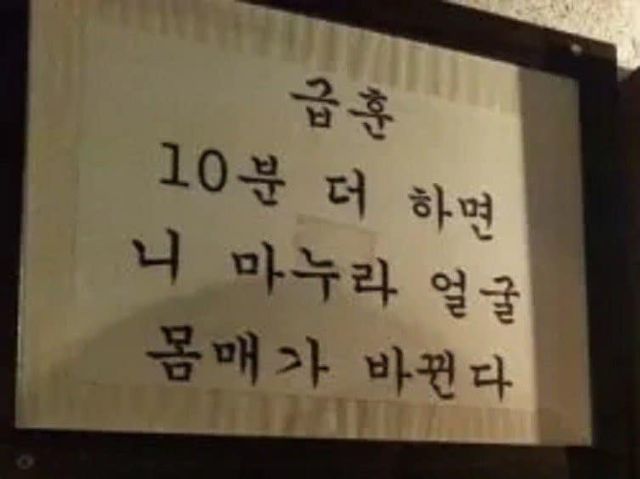 급훈
10분 더 하면
니 마누라 얼굴
몸매가 바뀐다